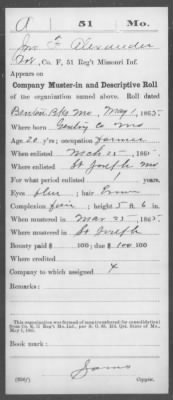 A 51 Mo.
Jno F Alexander
Pvt., Co. F, 51 Reg't Missouri Inf.
Appears on
Company Muster-in and Descriptive Roll
of the organization named above. Roll dated
Benton Bks Mo, May 1, 1865.
Where born Gentry Co Mo
Age 20 y'rs; occupation Farmer
When enlisted Mch 25, 1865.
Where enlisted St Joseph Mo
For what period enlisted 1 years.
Eyes blue; hair Brown
Complexion fair; height 5 ft. 6 in.
When mustered in Mar 25, 1865.
Where mustered in St Joseph
Bounty paid $ 100; due $ 100
Where credited
Company to which assigned
This organization was formed of men transferred for consolidation
May 1, 1865.
Book mark:
Copyist.